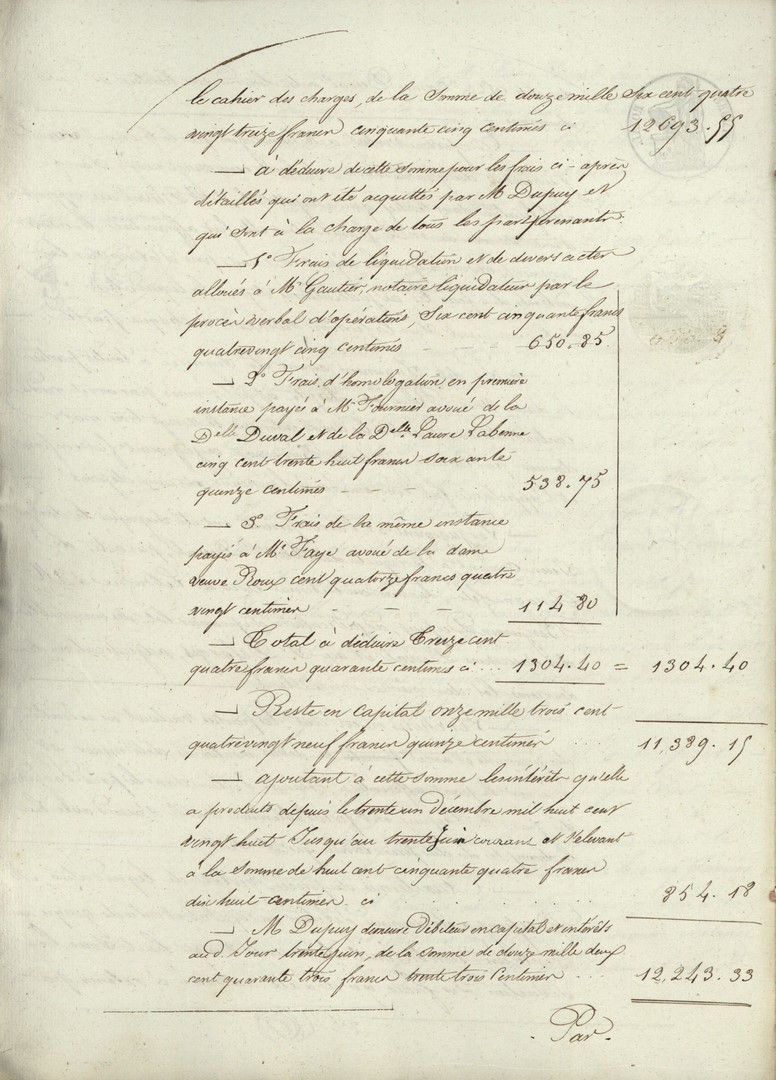 le cahier des charges, de la Somme de douze mille Six cent quatre
vingt treize francs cinquante cinq centimes ci 12693.55
— à déduire de cette somme pour les frais ci-après
détaillés qui ont été acquittés par M Dupuy et
qui sont à la charge de tous les parties prenantes.
— 1° Frais de liquidation et de divers actes
alloués à Me Gautier, notaire liquidateur par le
procès verbal d'opérations, Six cent cinquante francs
quatrevingt cinq centimes - - - 650.85.
— 2° Frais d'homologation en première
instance payés à Me Fournier avoué de la
Delle Duval et de la Delle Laure Labenne
cinq cent trente huit francs soixante
quinze centimes - - - 538.75
— 3° Frais de la même instance
payés à Me Faye avoué de la dame
veuve Roux cent quatorze francs quatre
vingt centimes - - - 114 80
— Total à déduire Treize cent
quatre francs quarante centimes ci... 1304.40 = 1304.40
— Reste en capital onze mille trois cent
quatrevingt neuf francs quinze centimes .... 11,389.15
— ajoutant à cette somme les intérêts qu'elle
a produits depuis le trente un décembre mil huit cent
vingt huit Jusqu'au trente Juin courant et S'élevant
à la Somme de huit cent cinquante quatre francs
dix huit centimes. ci ..... 854.18
— M Dupuy demeure Débiteur en capital et intérêts
aud. Jour trente juin, de la somme de douze mille deux
cent quarante trois francs trente trois Centimes ... 12,243.33
- Par -